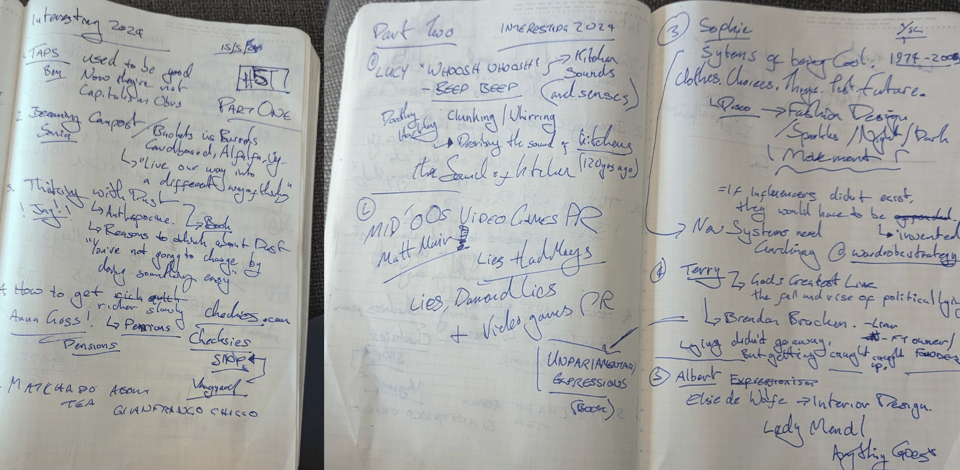 Interesting 2024
15/5/24
TAPS used to be good
Ben Now they're not
Capitalism Obvs
PART ONE
2. Becoming Compost / Buckets in Burrows
Sonia Cardboard, Alfalfa,
↳ "Live our way into
a different way of
3. Thinking with Dust
! Jay! ↳ Anthropocene. Book
↳ Reasons to think about Dust
"You're not going to change by
doing something easy"
4. How to get rich quickly
richer slowly
Anna Goss! ↳ Pensions
Pensions
checksies.com
Checksies
SIPP
Vanguard
MATCHADO ABOUT
TEA GIANFRANCO CHICCO
Part Two INTERESTING 2024
① LUCY "WHOOSH WHOOSH"
- BEEP BEEP
Kitchen
Sounds
(and senses)
Clunking / Whirring
Designing the sound of kitchens
(120 years ago)
the Sound of kitchen
②
MID '00s VIDEO GAMES PR
Matt Muir
Lies Had Keys
Lies, Damand Lies
+ Video games PR
UNPARLIAMENTARY
EXPRESSIONS
(BOOK)
③ Sophie
Sytems of being Cool. 1974-2008
Clothes. Choices. Things. Past. Future.
↳ Disco → Fashion Design
/ Sparkles / Night / Dark
Movement
= If influencers didn't exist,
they would have to be
↳ invented
→ New Systems need
@wardrobestrategy
④ Terry → Gods Greatest Live
the fall and rise of political lying
↳ Brendan Bracken.
Lying didn't go away,
But getting caught caught up,
⑤ Albert Expressionism
Elsie de Wolfe → Interior Design.
Lady Mendl
Anything Goes*